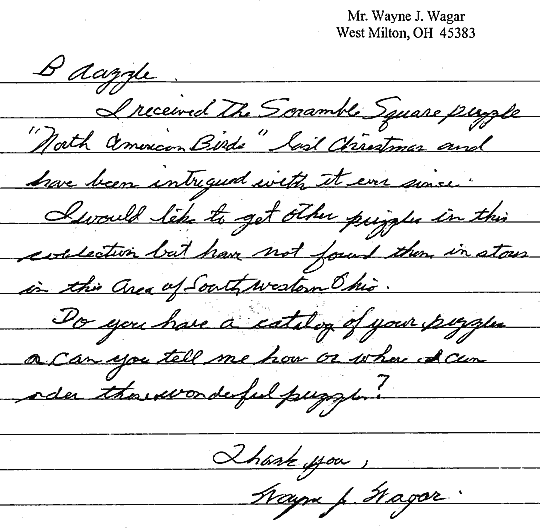 Mr. Wayne J. Wagar
West Milton, OH 45383
B Dazzle.
I received the Scramble Square puzzle
"North American Birds" last Christmas and
have been intrigued with it ever since.
I would like to get other puzzles in this
collection but have not found them in stores
in this Area of Southwestern Ohio.
Do you have a catalog of your puzzles
or can you tell me how or where I can
order these wonderful puzzles?
Thank you,
Wayne J. Wagar.